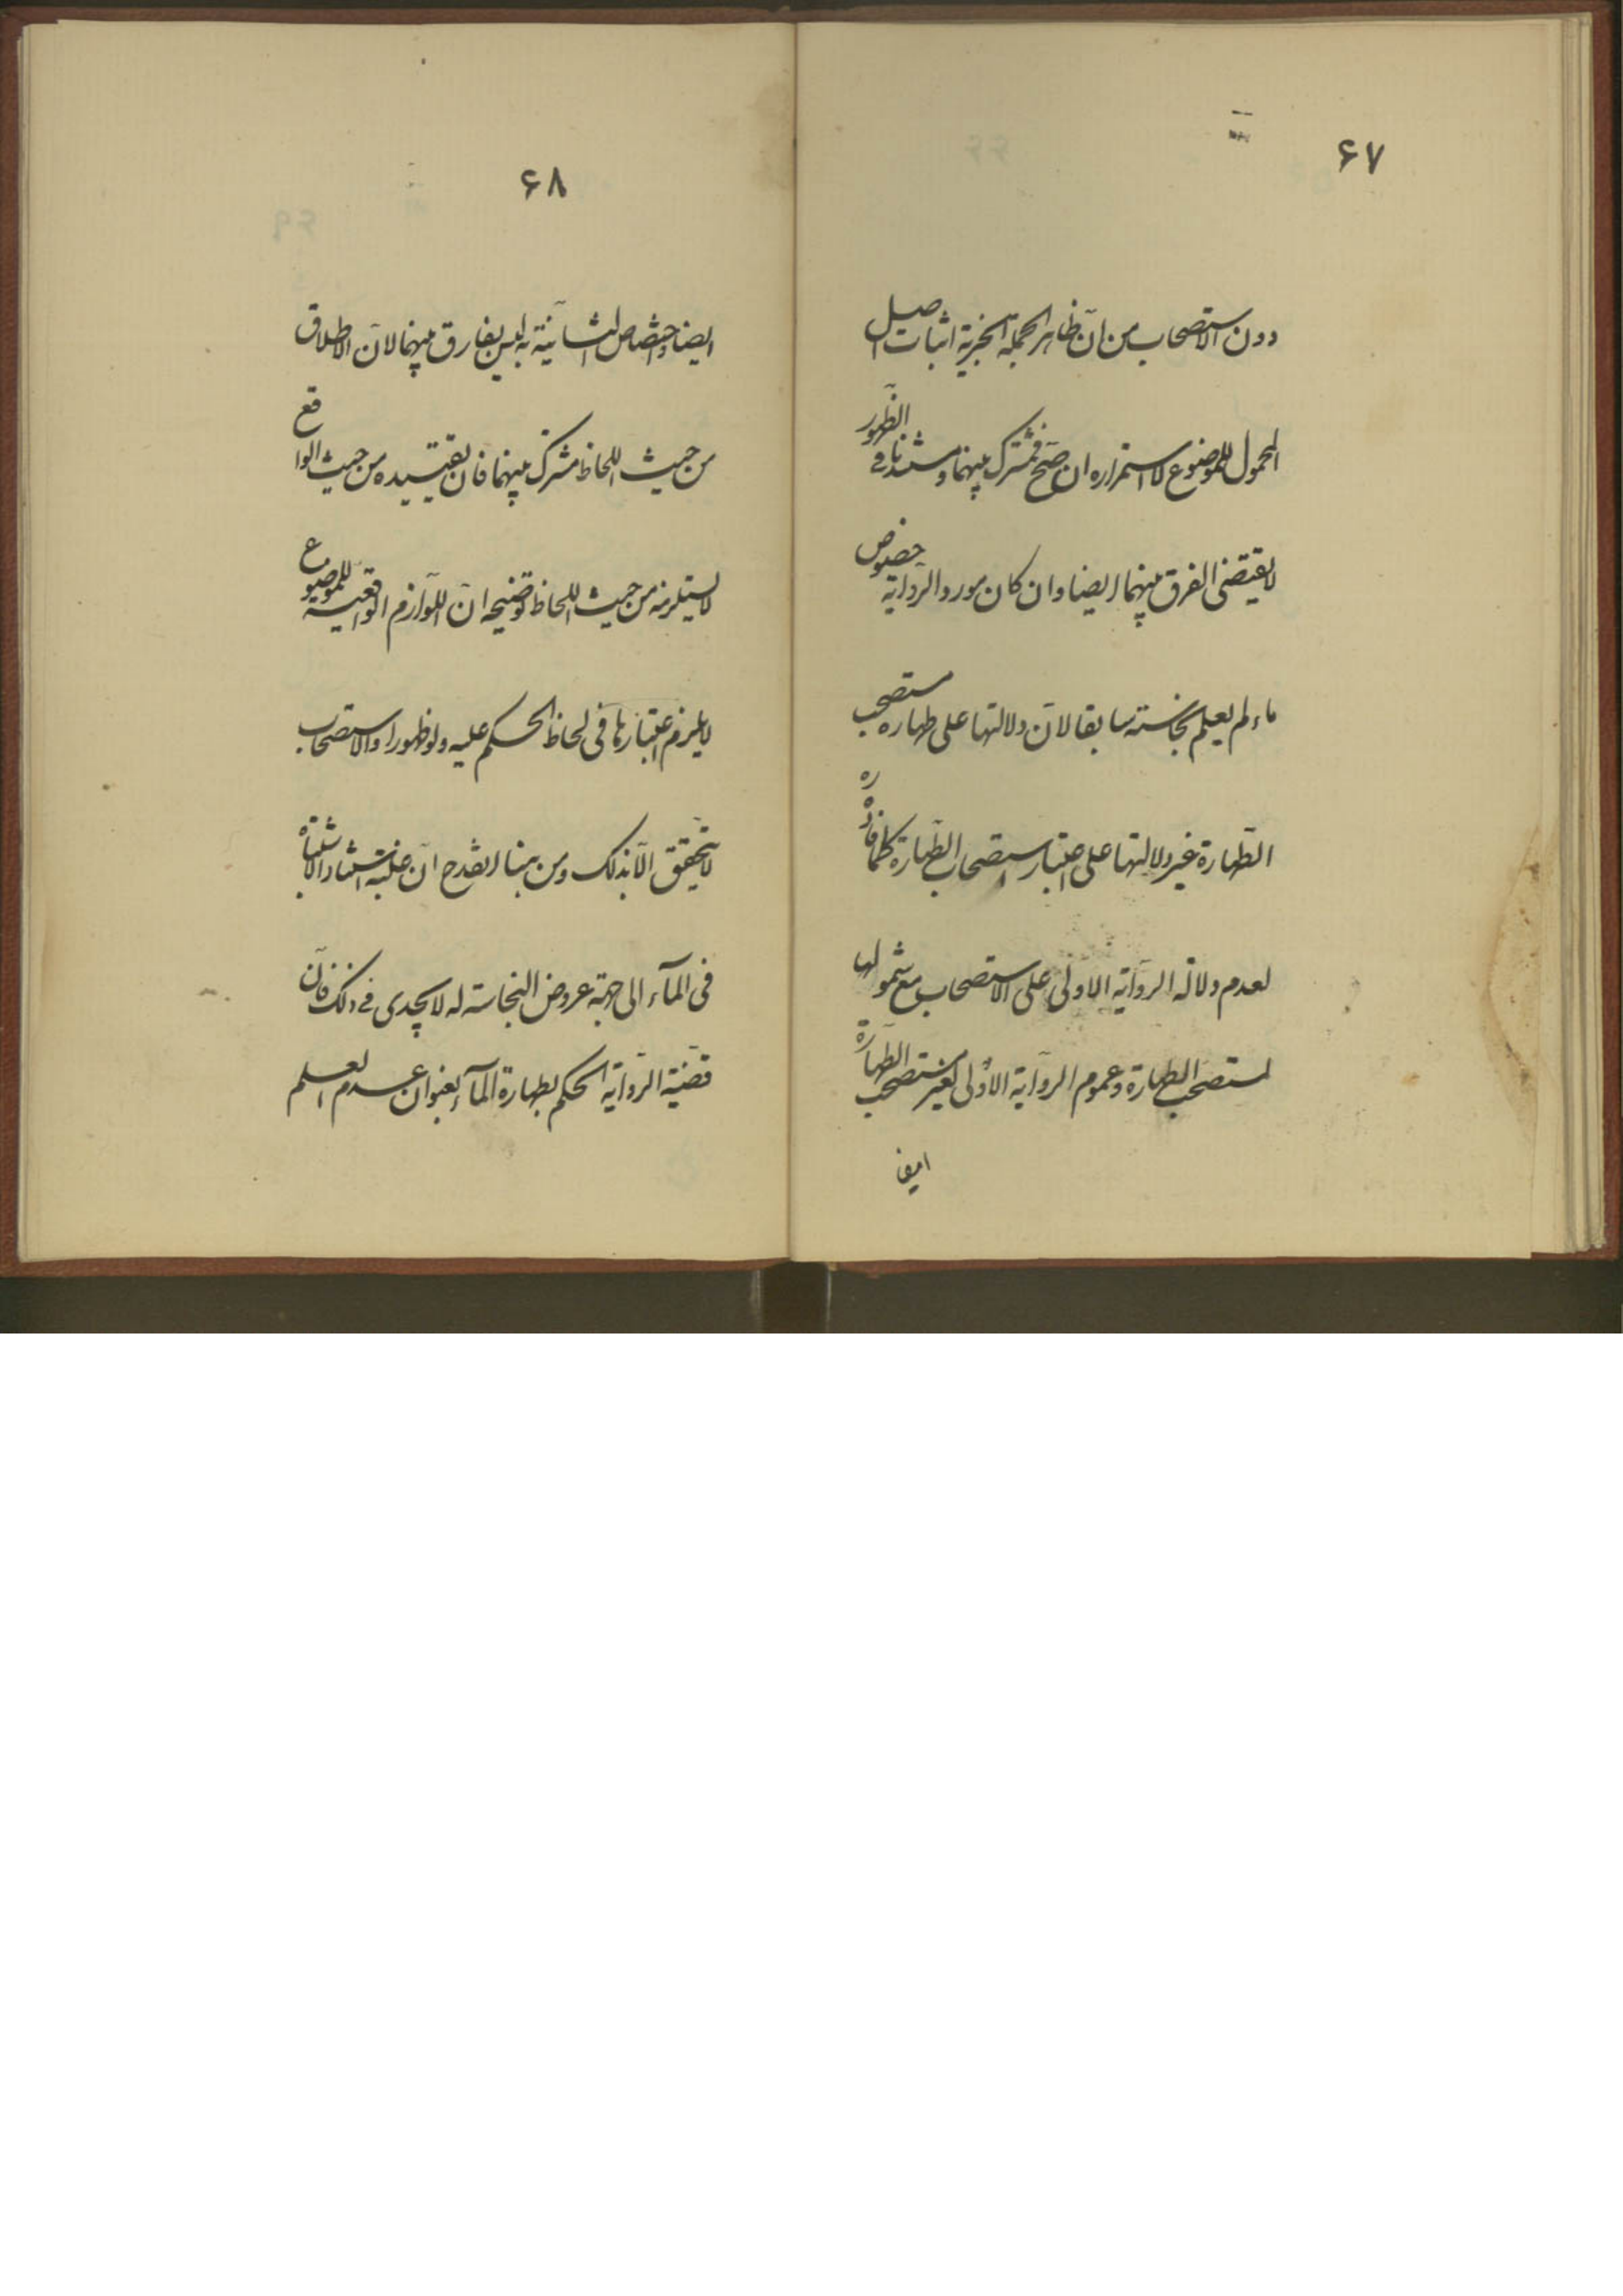 ۶۷
دون الاستصحاب من انّ ظاهر الجملة الخبرية اثبات اصل
المحمول للموضوع لا استمراره ان صحّ فمشترك بينهما ومستندنا في الظّهور
لا يقتضى الفرق بينهما ايضا وان كان مورد الرّواية خصوص
ماء لم يعلم نجاسته سابقا لانّ دلالتها على طهارة مستصحب
الطّهارة غير دلالتها على اعتبار استصحاب الطّهارة كما افاده ره
لعدم دلالة الرّواية الاولى على الاستصحاب مع شمولها
لمستصحب الطّهارة وعموم الرّواية الاولى لغير مستصحب الطّهارة
ايضا
۶۸
ايضا واختصاص الثّانية به ليس بفارق بينهما لانّ الاطلاق
من حيث اللحاظ مشترك بينهما فان تقييده من حيث الواقع
لا يستلزمه من حيث اللحاظ توضيحه انّ اللّوازم الواقعية للموضوع
لا يلزم اعتبارها فى لحاظ الحكم عليه ولو ظهورا والاستصحاب
لا يتحقّق الّا بذلك ومن هنا انقدح انّ غلبة استناد الاشتباه
فى المآء الى جهة عروض النجاسة له لا يجدى في ذلك فانّ
قضيّة الرّواية الحكم بطهارة المآء بعنوان عدم العلم